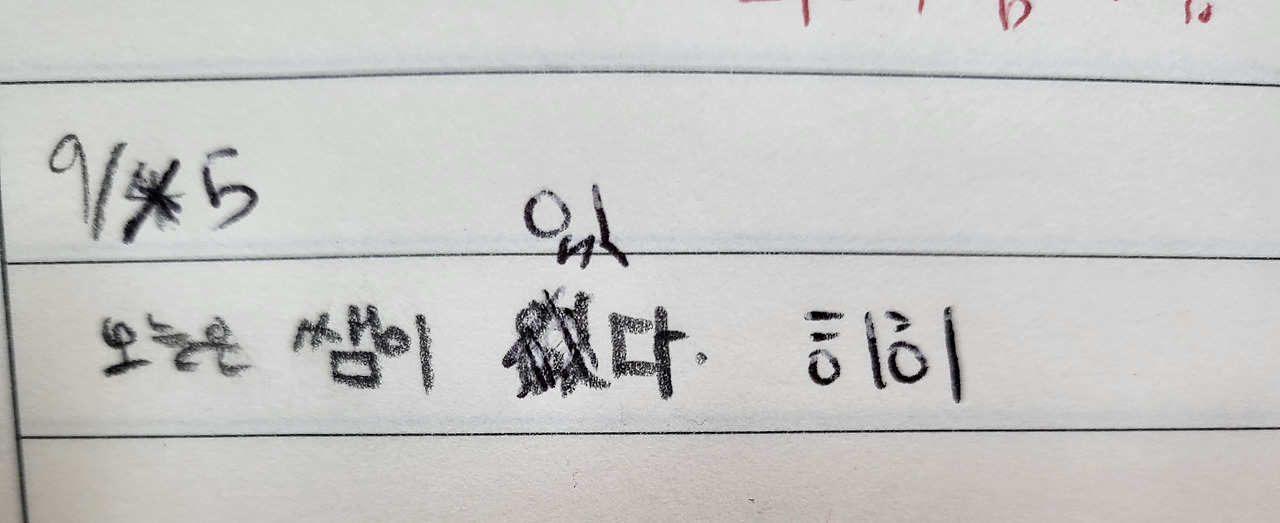 9/5
오늘은 쌤이 있다. 히히